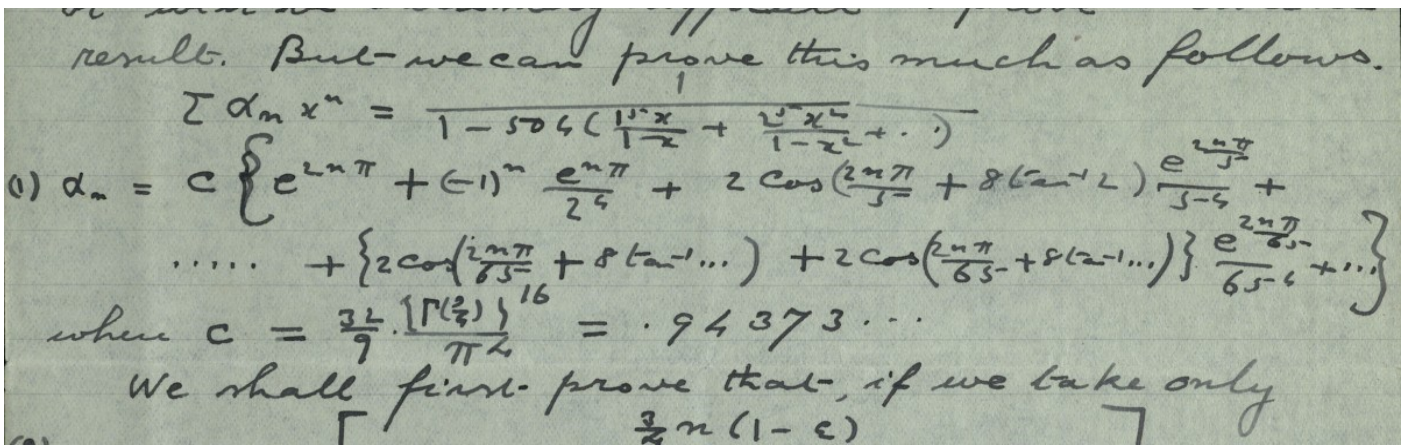 result. But we can prove this much as follows.
Σ αₙ xⁿ = 1 / (1 − 504 (1⁵x/(1−x) + 2⁵x²/(1−x²) + ..))
(1) αₙ = C { e^{2nπ} + (−1)ⁿ e^{nπ}/2⁴ + 2 Cos(2nπ/5 + 8 tan⁻¹ 2) e^{2nπ/5}/5⁴ +
..... + {2 cos(2nπ/65 + 8 tan⁻¹ ...) + 2 cos(2nπ/65 + 8 tan⁻¹ ...)} e^{2nπ/65}/65⁴ + ... }
where C = 32/9 · {Γ(3/4)}¹⁶/π⁴ = .94373...
We shall first prove that, if we take only
n (1 − ε)